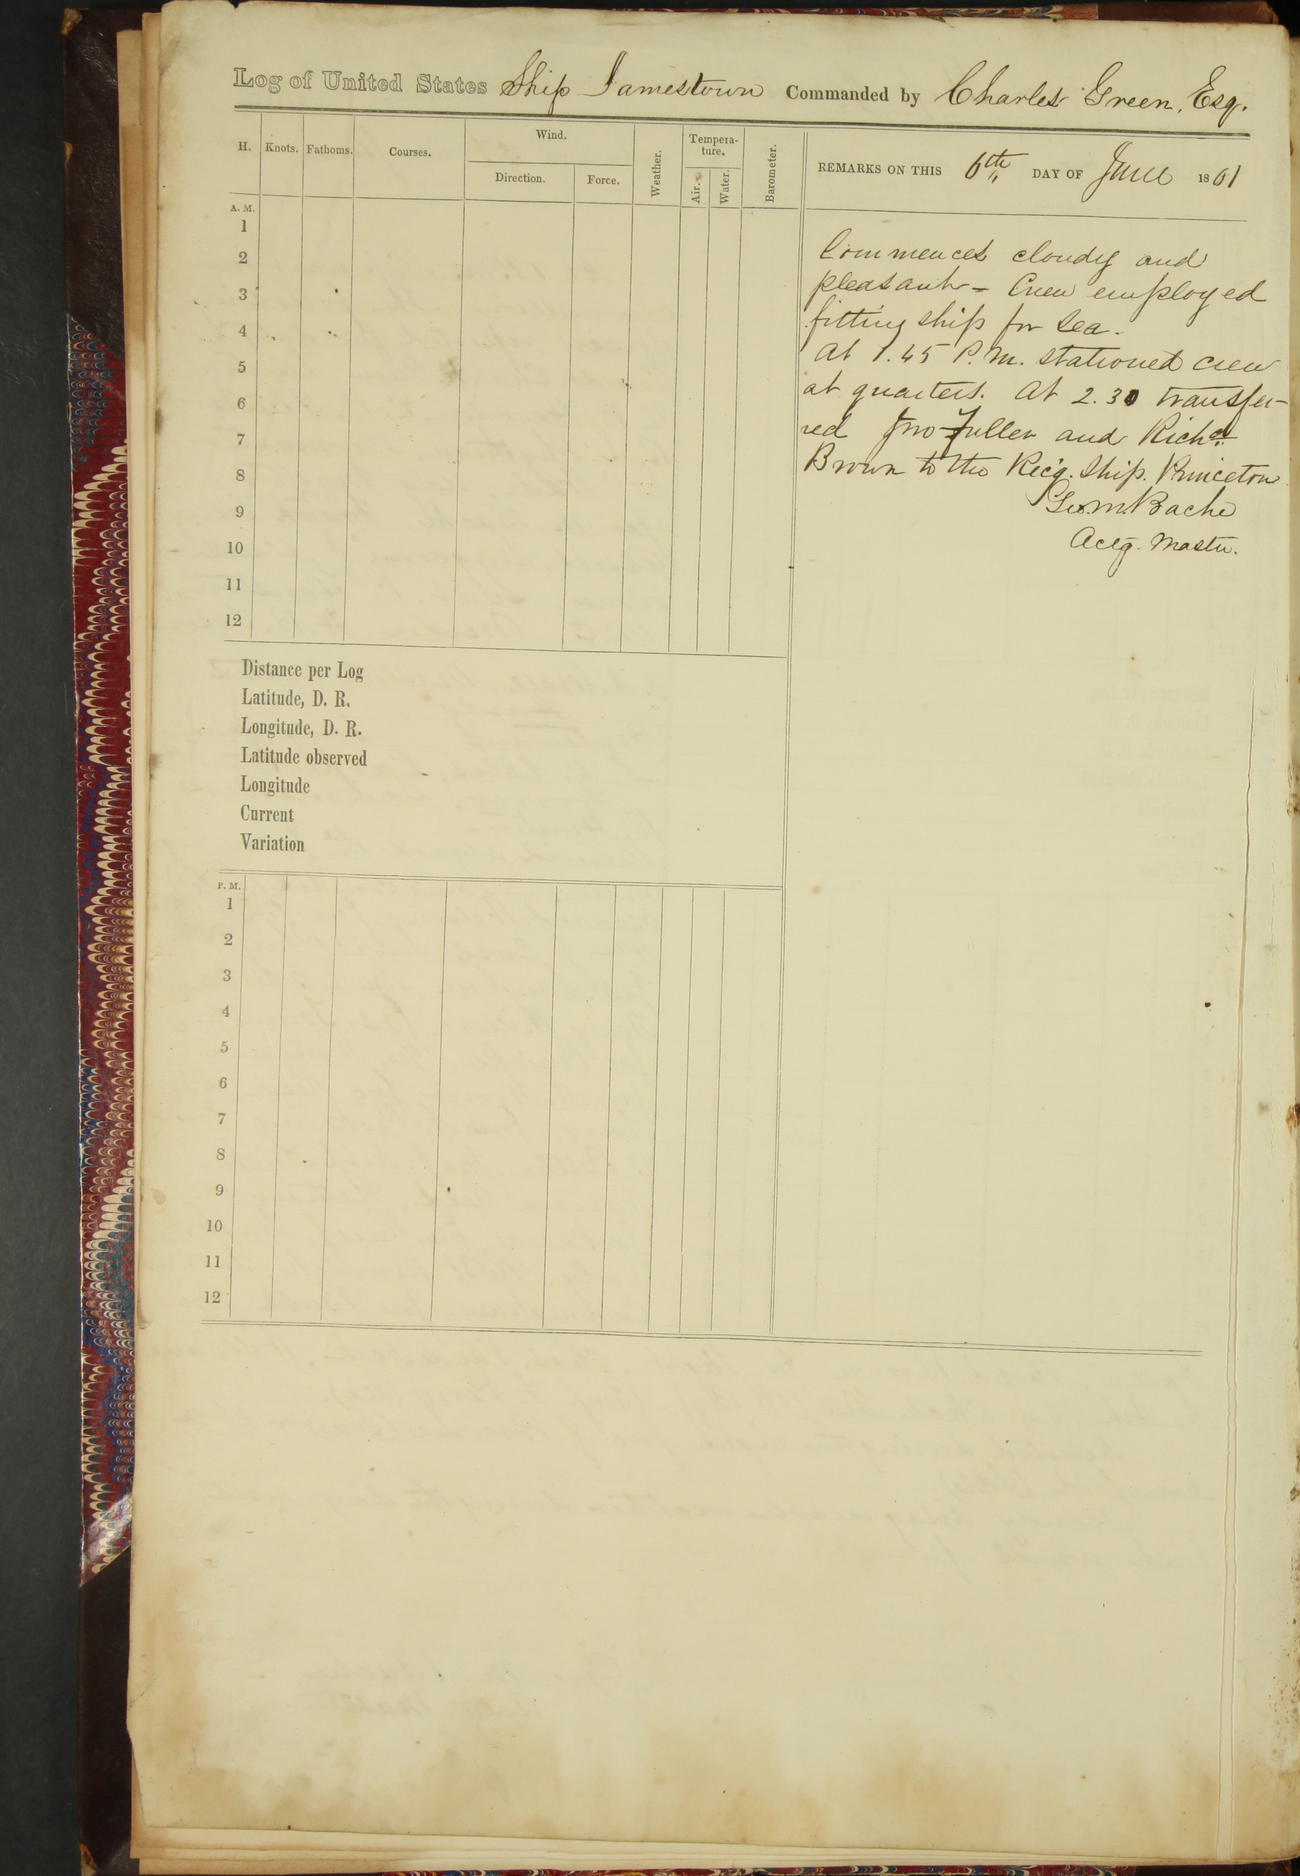 Log of United States Ship Jamestown Commanded by Charles Green, Esq.
H. Knots. Fathoms. Courses. Wind. Direction. Force. Weather. Tempera-ture. Air. Water. Barometer.
REMARKS ON THIS 6th DAY OF June 1861
A. M.
1
2
3
4
5
6
7
8
9
10
11
12
Commences cloudy and
pleasant - Crew employed
fitting ship for sea.
At 1.45 P.M. stationed crew
at quarters. At 2.30 transfer-
red Jno Fuller and Richd
Brown to the Rec'g. Ship. Princeton
Geo. M. Bache
Actg. Master.
Distance per Log
Latitude, D. R.
Longitude, D. R.
Latitude observed
Longitude
Current
Variation
P. M.
1
2
3
4
5
6
7
8
9
10
11
12